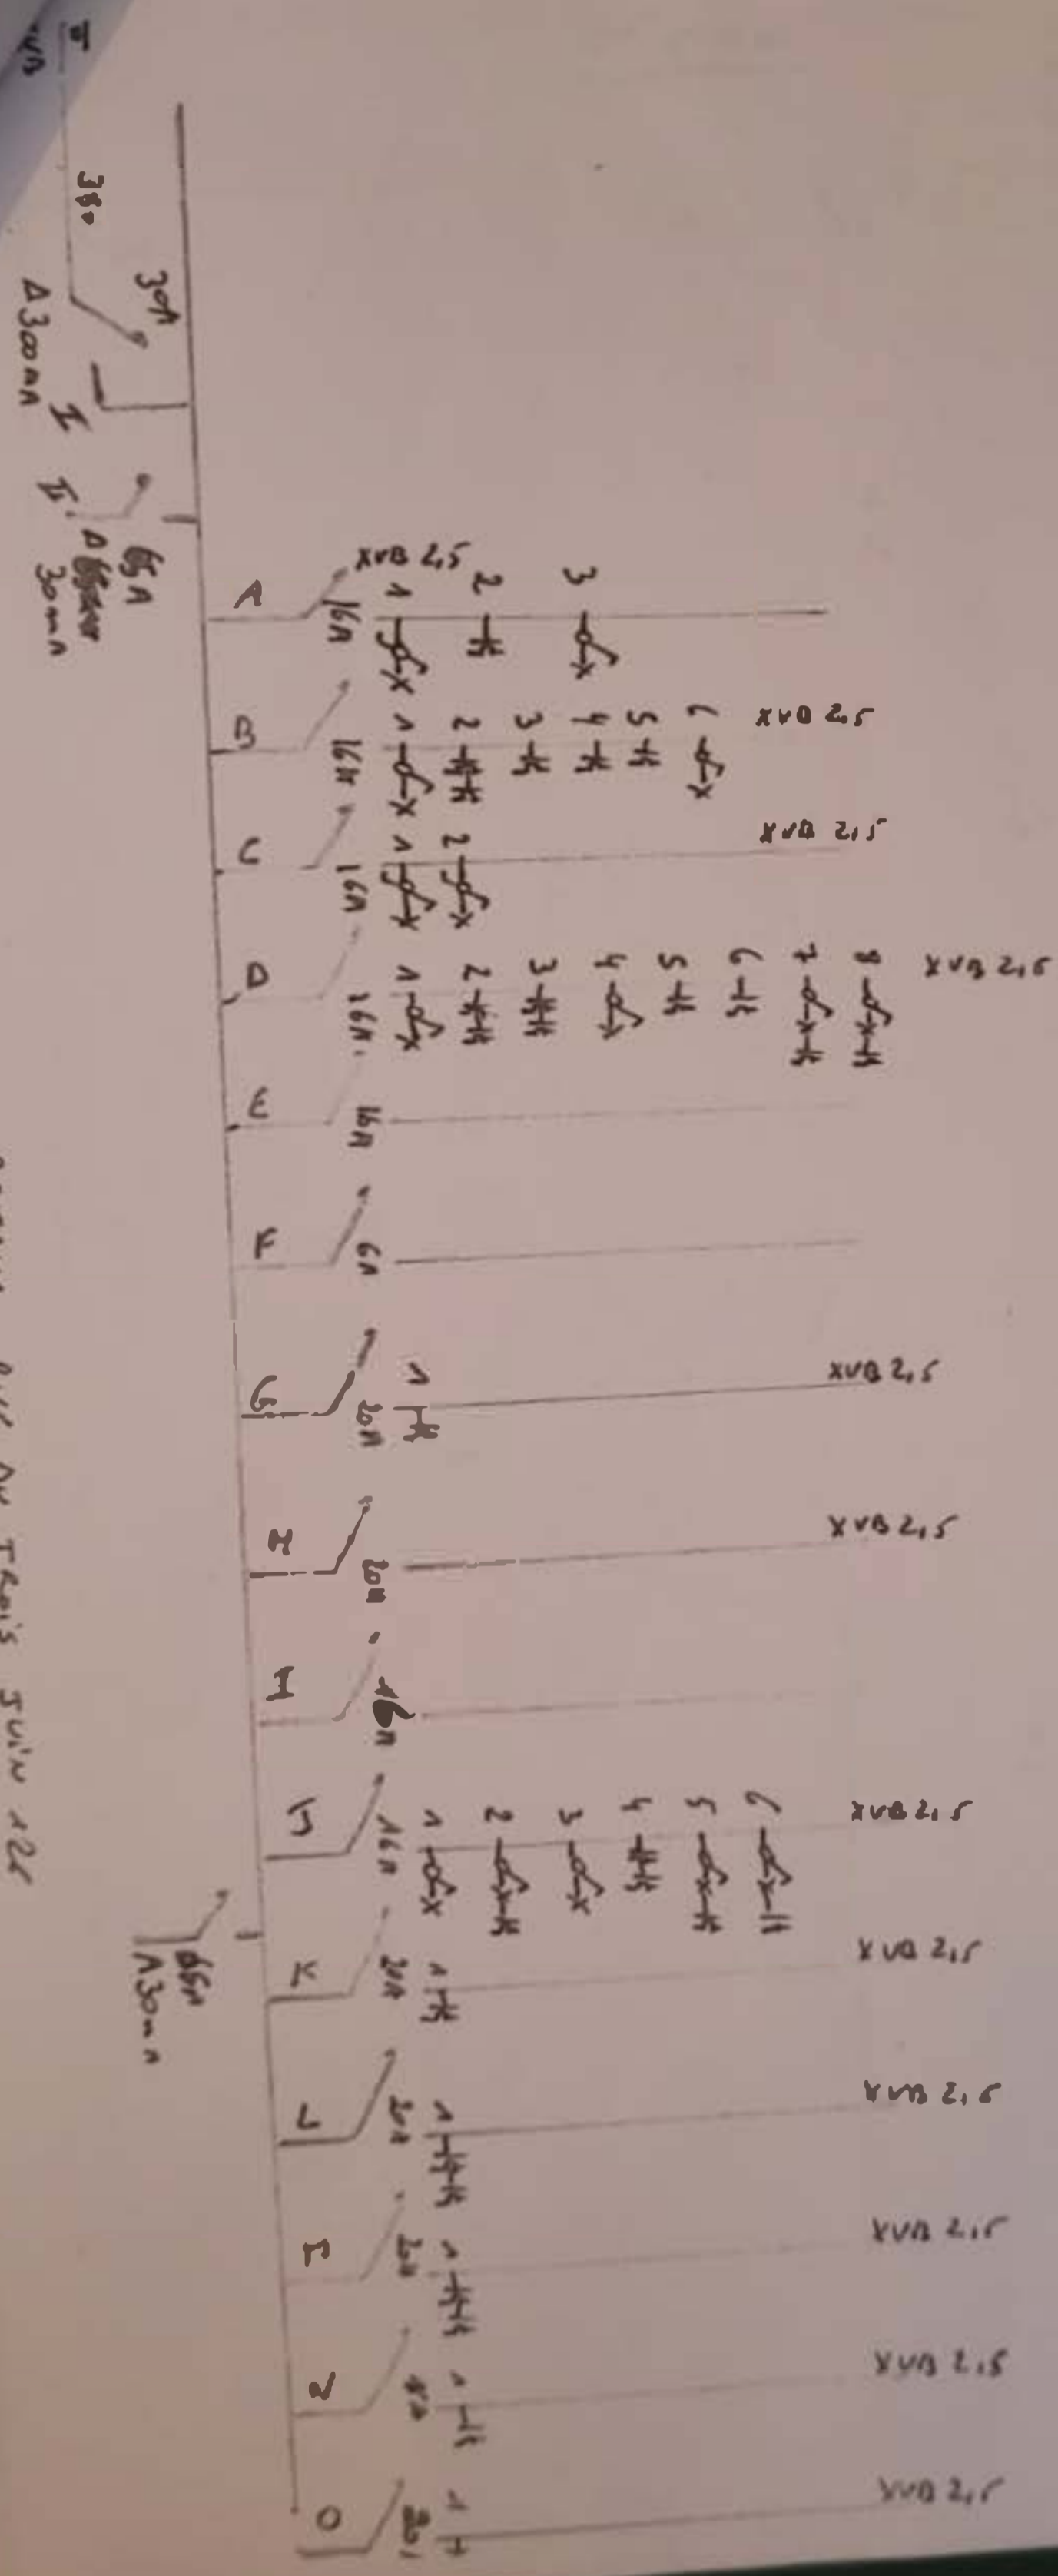 XVB
380
30A
Δ300mA
I
II
65A
Δ
30mA
A
16A
XVB 2,5
1 2 3
B
16A
1 2 3 4 5 6
XVB 2,5
C
16A
1 2
XVB 2,5
D
16A
1 2 3 4 5 6 7 8
XVB 2,5
E
16A
F
6A
G
20A
1
XVB 2,5
H
20A
XVB 2,5
I
16A
J
16A
1 2 3 4 5 6
XVB 2,5
65A
Δ30mA
K
20A
1
XVB 2,5
L
20A
1
XVB 2,5
20A
1
XVB 2,5
1
XVB 2,5
O
20A
1
XVB 2,5
TROIS JUIN 126